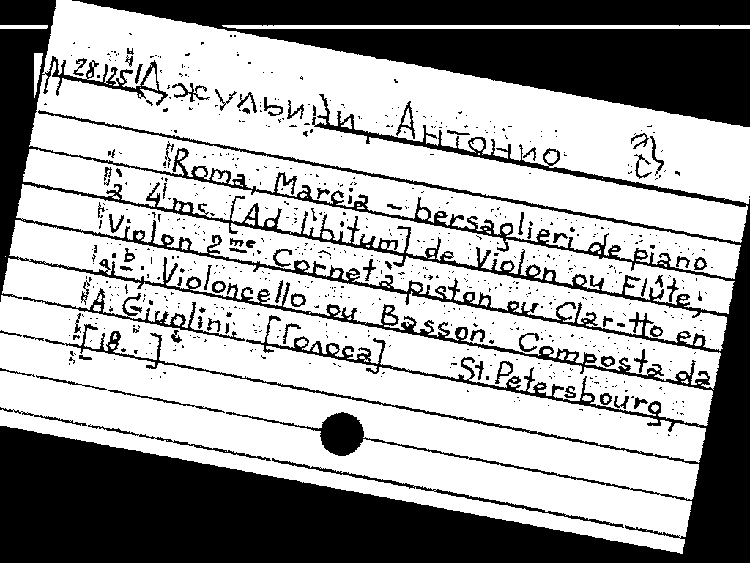 28.125
Джульини, Антонио
Roma, Marcia – bersaglieri de piano
à 4 ms. [Ad libitum] de Violon ou Flûte;
Violon 2me; Cornet à piston ou Clar-tto en
si b; Violoncello ou Basson. Composta da
A. Giuolini. [Голоса] St. Petersbourg,
[18..]